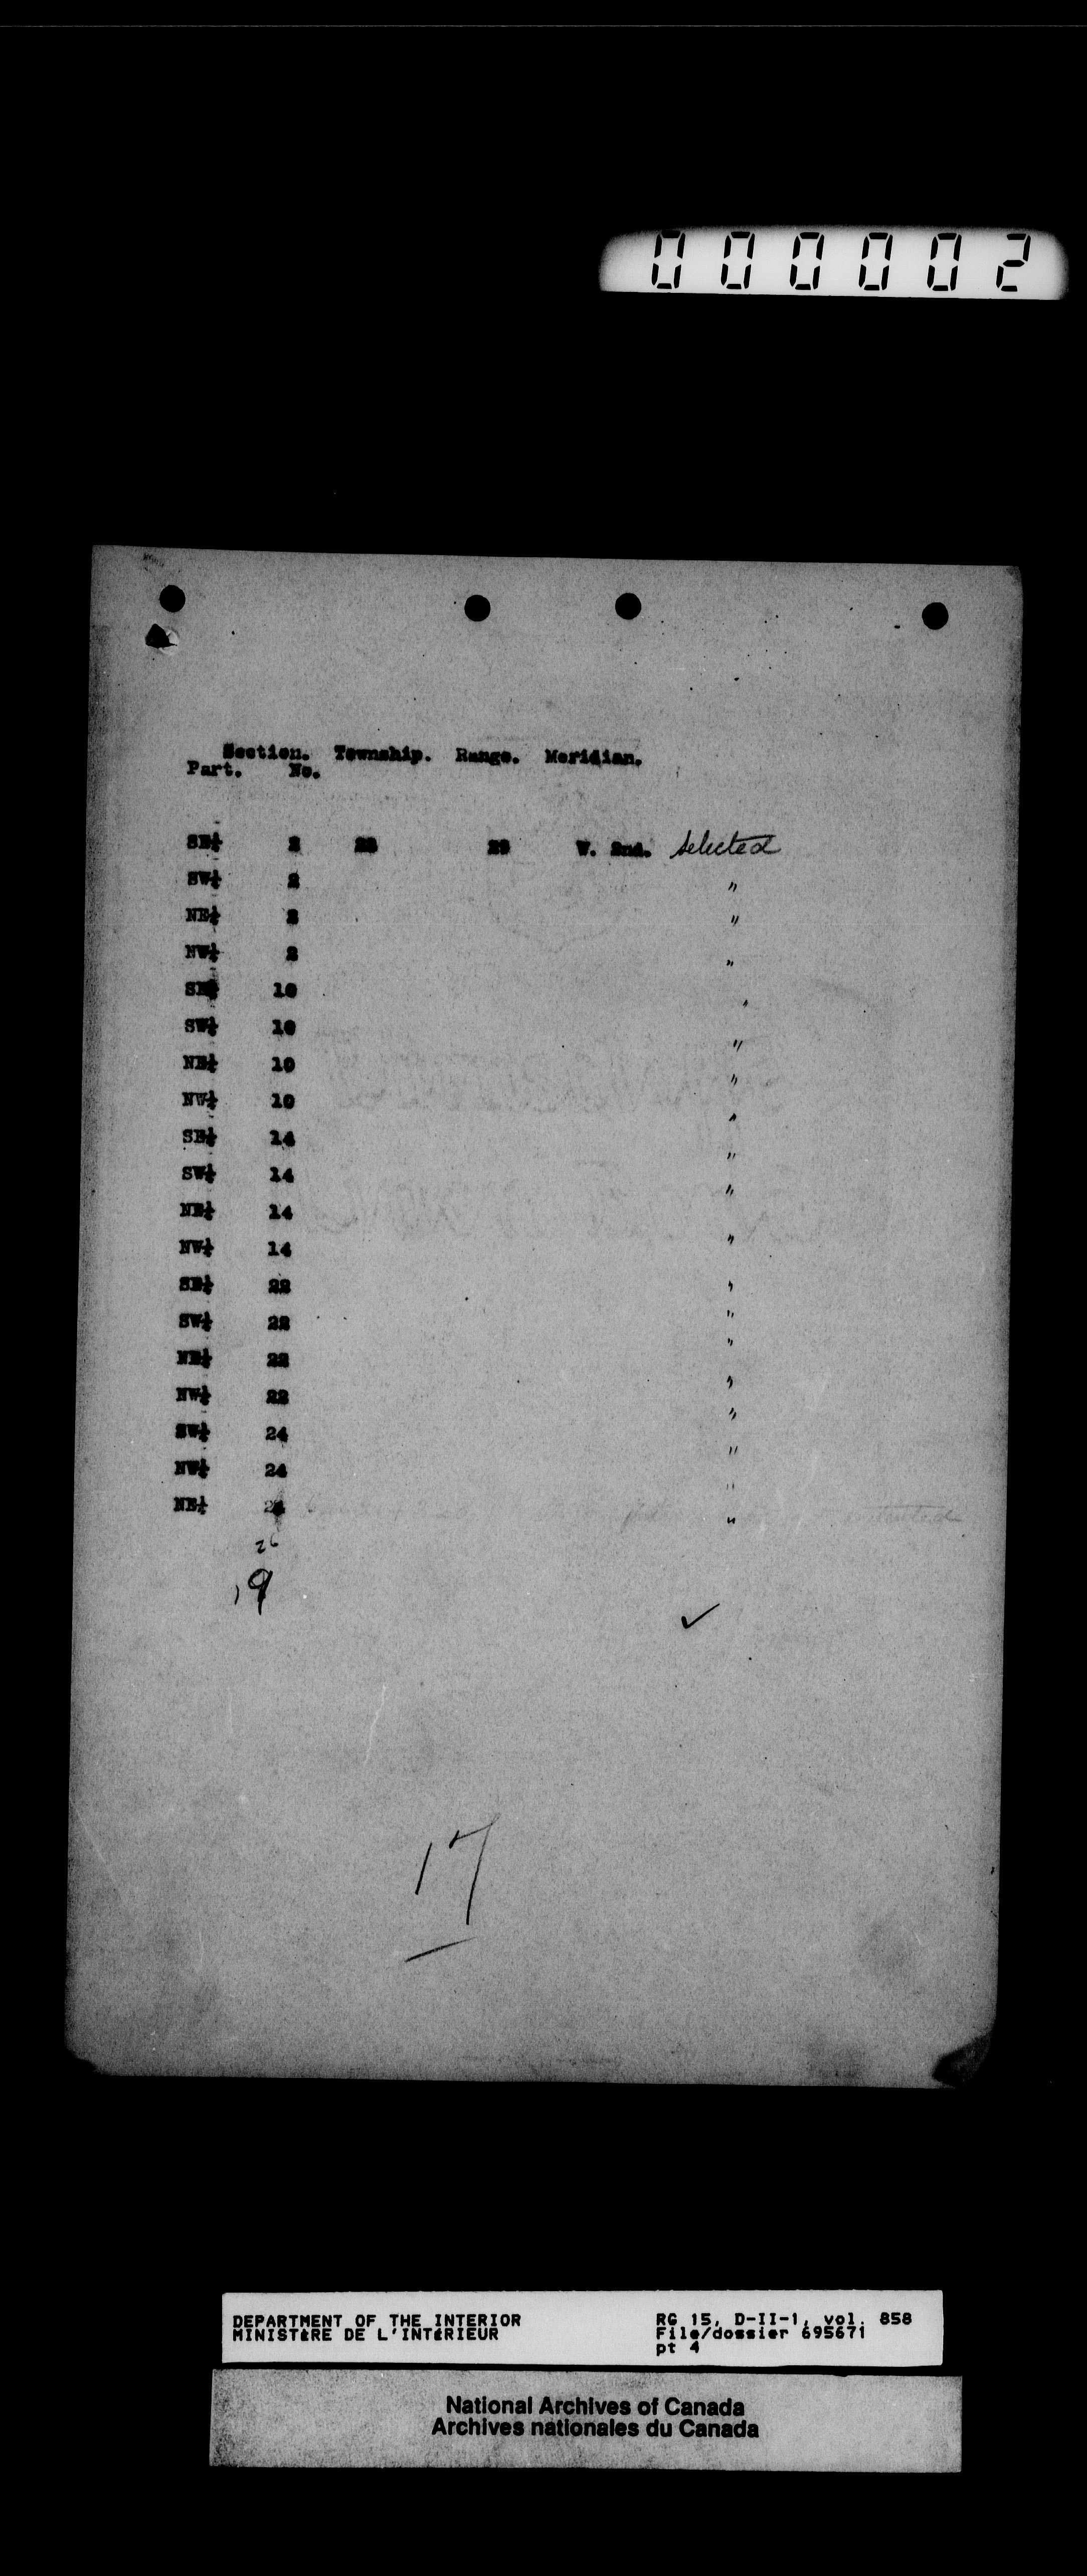 000002
Section. Township. Range. Meridian.
Part. No.
SE¼ 2 22 29 W. 2nd. Selected
SW¼ 2 "
NE¼ 2 "
NW¼ 2 "
SE¼ 10 "
SW¼ 10 "
NE¼ 10 "
NW¼ 10 "
SE¼ 14 "
SW¼ 14 "
NE¼ 14 "
NW¼ 14 "
SE¼ 22 "
SW¼ 22 "
NE¼ 22 "
NW¼ 22 "
SW¼ 24 "
NW¼ 24 "
NE¼ 24 "
26
19
✓
17
DEPARTMENT OF THE INTERIOR RG 15, D-II-1, vol. 858
MINISTÈRE DE L'INTÉRIEUR File/dossier 695671
pt 4
National Archives of Canada
Archives nationales du Canada